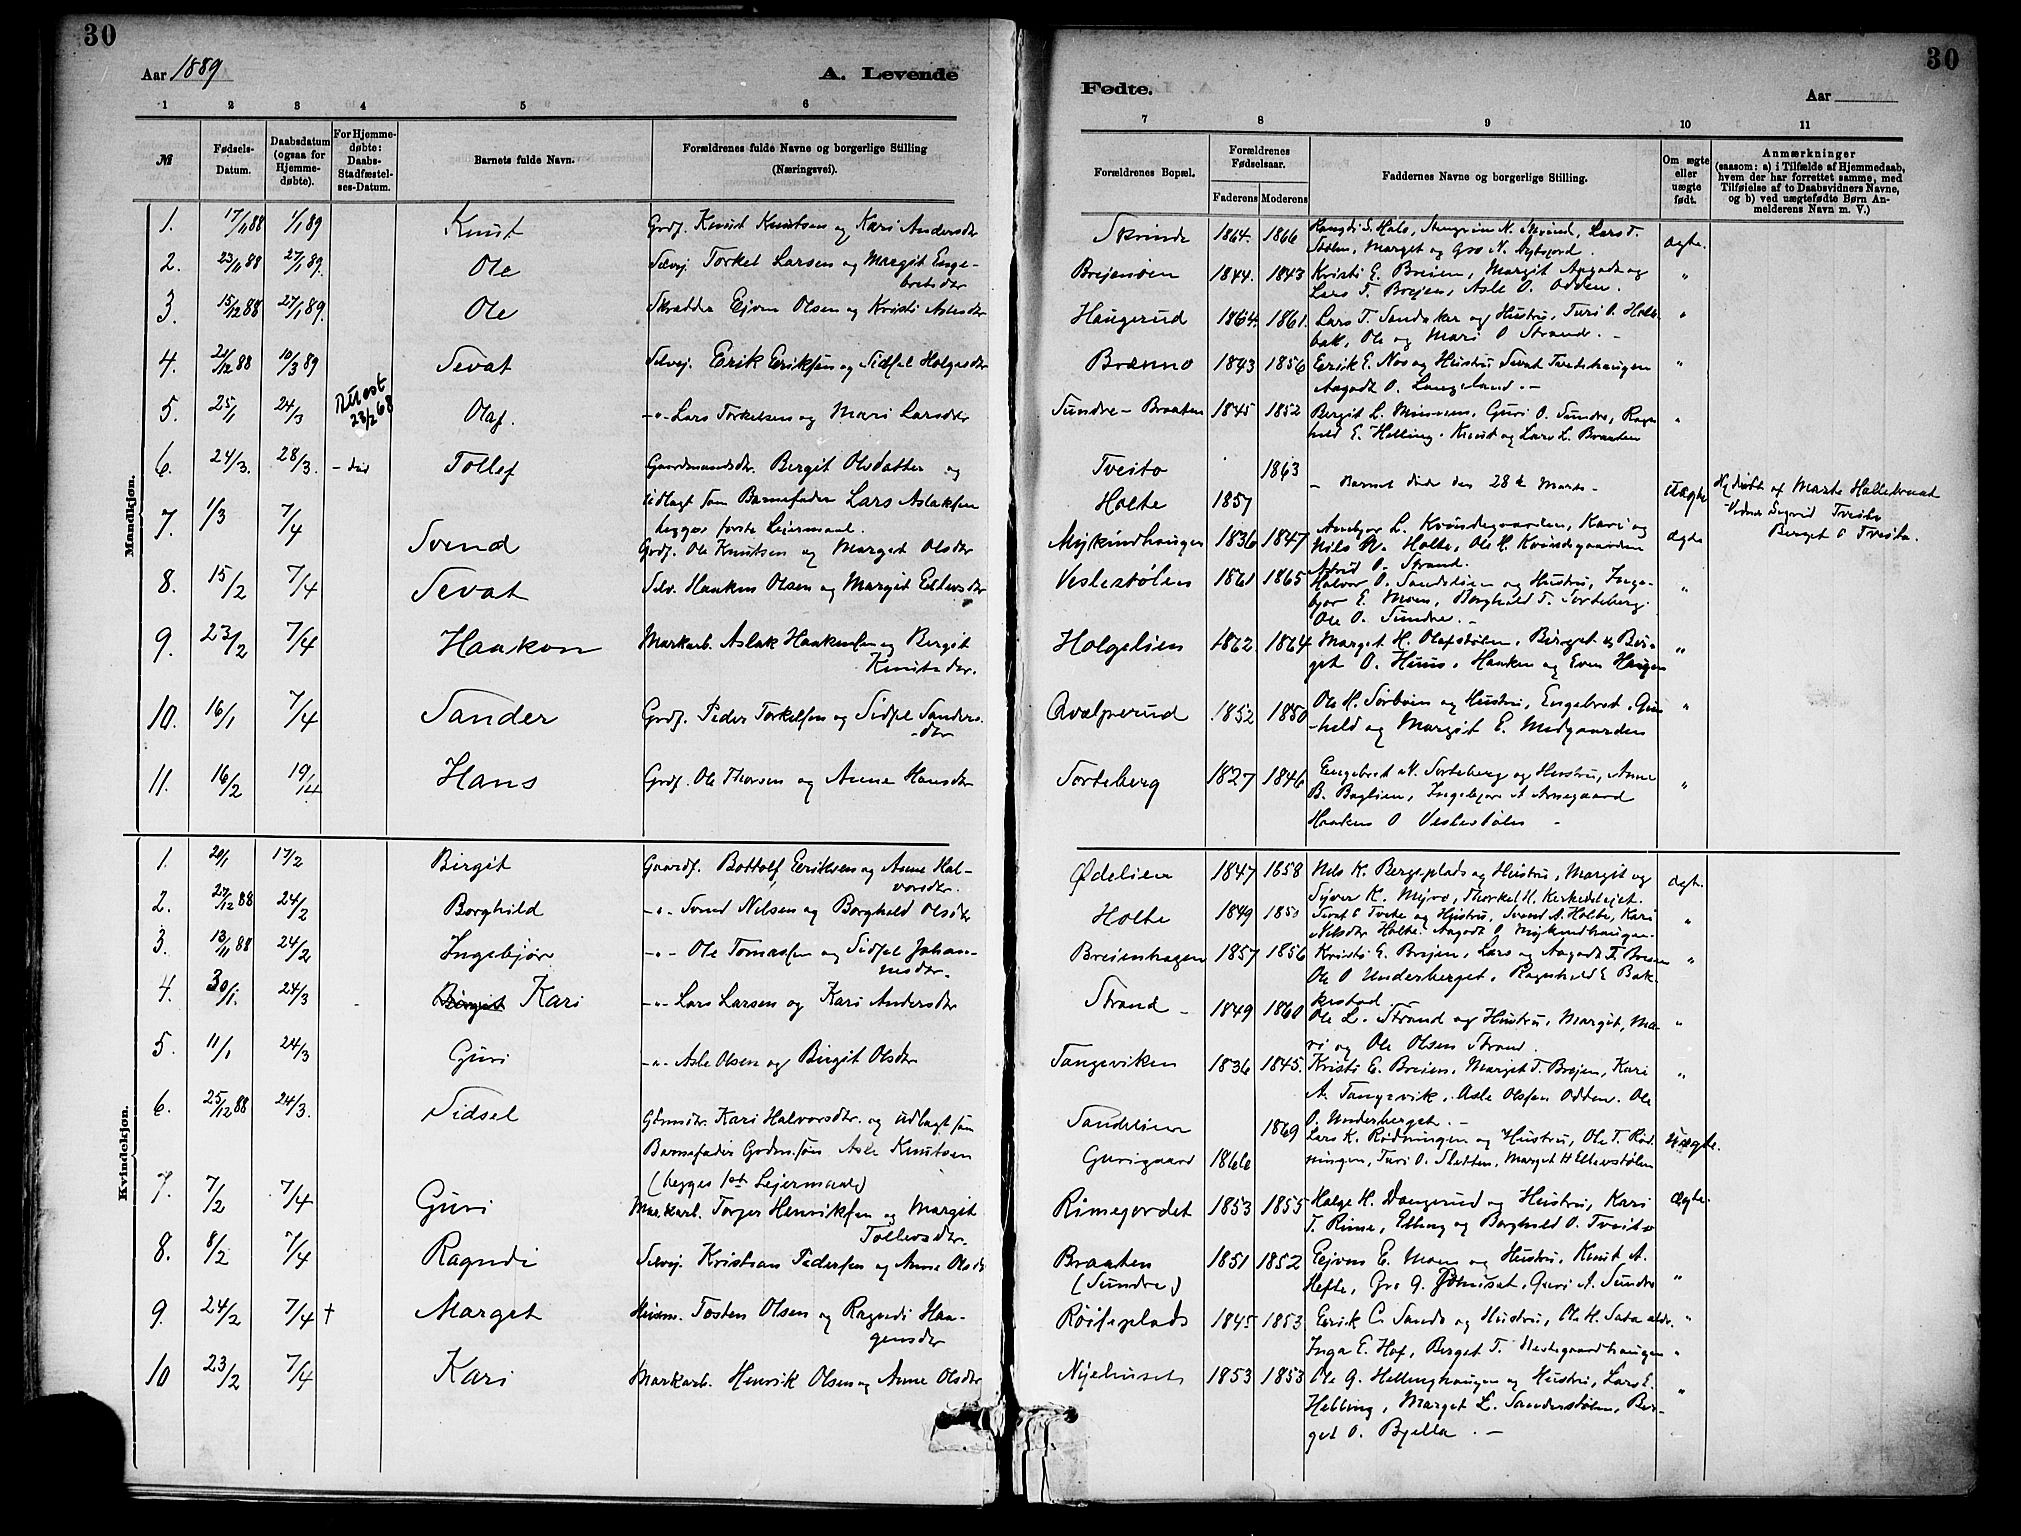 30
Aar 1889
A. Levende
1 2 3 4 5 6
№
Fødsels-
Datum.
Daabsdatum
(ogsaa for
Hjemme-
døbte).
For Hjemme-
døbte:
Daabs-
Stadfæstel-
ses-Datum.
Barnets fulde Navn.
Forældrenes fulde Navne og borgerlige Stilling
(Næringsvei).
Mandkjøn.
1. 17/11 88 1/1 89 Knut Grdf. Knut Knutsen og Kari Andersdtr
2. 23/11 88 27/1 89. Ole Selvej. Torkel Larsen og Margit Enge-
bretsdtr
3. 15/12 88 27/1 89. Ole Skrædder Ejven Olsen og Kristi Aslesdtr
4. 21/12 88 10/3 89 Sevat Selvej. Erik Eriksen og Sidsel Holgesdtr
5. 25/1 24/3 23/2 68 Olaf. -"- Lars Torkelsen og Mari Larsdtr
6. 24/3. 28/3. Tollef Gaardmandsdtr. Bergit Olsdatter og
udlagt som Barnefader Lars Aslaksen
begges første Leiermaal.
7. 1/3 7/4 Svend Grdf. Ole Knutsen og Marget Olsdtr
8. 15/2 7/4 Sevat Selv. Haaken Olsen og Margit Ellevsdtr
9. 23/2 7/4 Haakon Markarb. Aslak Haakensen og Bergit
Knutsdtr.
10. 16/1 7/4 Sander Grdf. Peder Torkelsen og Sidsel Sanders-
dtr
11. 16/2 19/4 Hans Grdf. Ole Thorsen og Anne Hansdtr
Kvindekjøn.
1. 20/1 17/2 Birgit Gaardf. Bottolf Eriksen og Anne Hal-
vorsdtr.
2. 27/12 88 24/2 Borghild -"- Svend Nilsen og Borghild Olsdtr
3. 13/11 88 24/2 Ingebjør -"- Ole Tomassen og Sidsel Johan-
nesdtr.
4. 30/1. 24/3 Birgit Kari -"- Lars Larsen og Kari Andersdtr
5. 11/1 24/3 Guri -"- Asle Olsen og Birgit Olsdtr
6. 25/12 88 24/3. Sidsel Kari Halvorsdtr. og udlagt som
Barnefader Asle Knutsen
(begges 1st Lejermaal)
7. 7/2 7/4 Guri Markarb. Torger Henriksen og Margit
Tollevsdtr.
8. 8/2 7/4 Ragndi Selvej. Kristian Pedersen og Anne Olsdtr
9. 24/2 7/4 † Marget Husm. Tosten Olsen og Ragndi Haa-
gensdtr
10 23/2 7/4 Kari Markarb. Henrik Olsen og Anne Olsdtr
30
Fødte.
Aar
7 8 9 10 11
Forældrenes Bopæl.
Forældrenes
Fødselsaar.
Faderens Moderens
Faddernes Navne og borgerlige Stilling.
Om ægte
eller
uægte
født.
Anmærkninger
(saasom: a) i Tilfælde af Hjemmedaab,
hvem der har forrettet samme, med
Tilføielse af to Daabsvidners Navne,
og b) ved uægtefødte Børn An-
melderens Navn m. V.)
Skrinde 1864. 1866 Lars T.
Marget og Gro N. ægte.
Brejenøen 1844. 1843 Kristi E. Breien, Margit Aagodt og
Lars T. Brejen, Asle O. Odden. "
Haugerud 1864. 1861. Lars T. Sandaker og Hustru, Turi O. Holte-
bak, Ole og Mari O Strand. - "
Brænno 1843 1856 Erik E. Nos og Hustru Sevat Tvetohaugen
Aagodt O. Langeland. - "
Sundre-Braaten 1845 1852 Bergit L. Guri O. Sundre, Ragn-
hild E. Helling. Knut og Lars L. Braaten "
Tveito 1863
Holte 1857 - Barnet døde den 28de Marts - Uægte Hj.døbt af Marte Hallebraat
Vidner Sigrid Tveito
Berget O Tveito.
Myklundhaugen 1836 1847 Annbjør L. Kvindegaarden, Kari og
Nils N. Holte, Ole H. Kvindegaarden
Astrid O. Strand. ægte
Veslestølen 1861 1865 Halvor O. Sandelien og Hustru, Inge-
bjør E. Moen, Borghild T. Sorteberg.
Ole O. Sundre. - "
Holgelien 1862. 1864 Marget H. Olafstølen, Birget og Bir-
get O. Huus, Haaken og Even Haugen "
Qvælperud 1852 1850 Ole H. Sørbøen og Hustru, Engebret, Gun-
hild og Margit E. Medgaarden "
Sorteberg 1827 1846 Engebret N. Sorteberg og Hustru, Anne
B. Baglien, Ingebjør A Arnegaard
Haaken O Veslestølen - "
Ødelien 1847 1858 Nils K. Bergeplads og Hustru, Margit og
Syver K. Myro, Thorkel H. Kirkedelejet. ægt.
Holte 1849 1850 Sevat O Tveto og Hustru, Svend A. Holte, Kari
Nilsdtr Holte. Aagodt O Myklundhaugen. "
Breienhagen 1857 1856 Kristi E. Brejen, Lars og Aagodt T. Breien
Ole O Underberget, Ragnhild E Bak-
kestad. "
Strand - 1849 1860 Ole L. Strand og Hustru, Margit, Ma-
ri og Ole Olsen Strand. "
Tangeviken 1836 1845. Kristi E. Breien, Marget T. Brejen, Kari
A. Tangevik, Asle Olsen Odden. Ole
O. Underberget. - "
Sandelien 1869
Gurigaard 1866 Lars K. Rødningen og Hustru, Ole T. Rød-
ningen, Turi O. Sletten, Marget H Ellevstølen Uægte.
Rimegordet 1853 1855 Holge H. Daugerud og Hustru, Kari
T. Rime, Elling og Borghild O. Tveito ægte.
Braaten 1851 1852 Ejven E. Moen og Hustru, Knut A.
(Sundre) Hefte, Gro G. Guri A. Sundre "
Røiseplads 1845 1853 Erik C. Sando og Hustru, Ole H. Sata
Inga E. Hof, Berget T. Nestegaardhaugen "
Nyehuset 1853 1853 Ole G. Hellinghaugen og Hustru, Lars E.
Helling, Marget L. Sanderstølen, Bir-
get O. Bjella. - "